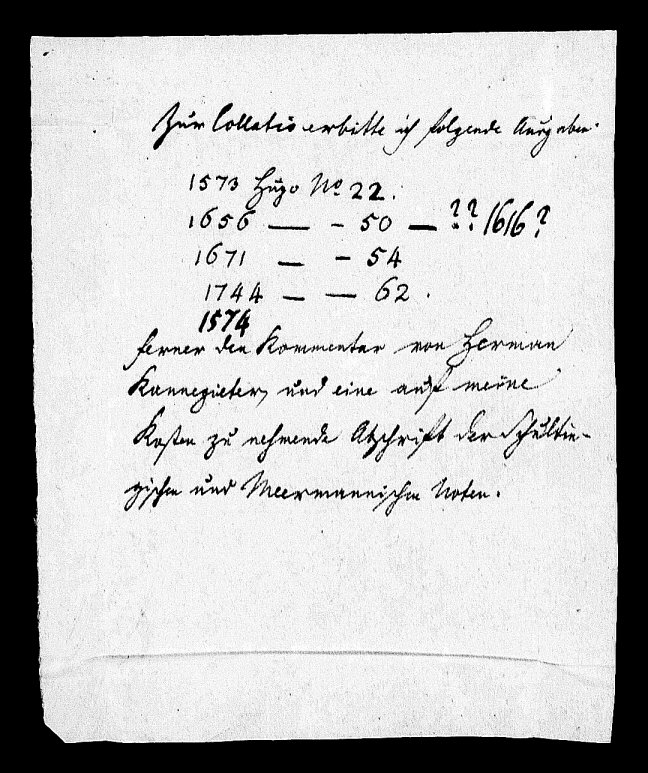 Zur Collatio erbitte ich folgende Ausgaben:
1573 Hugo No 22.
1656 — - 50 — ?? 1616?
1671 — - 54
1744 — — 62.
1574
ferner den Kommentar von Herman
Kannegieter, und eine auf meine
Kosten zu nehmende Abschrift der Schultin-
gischen und Meermannischen Noten.